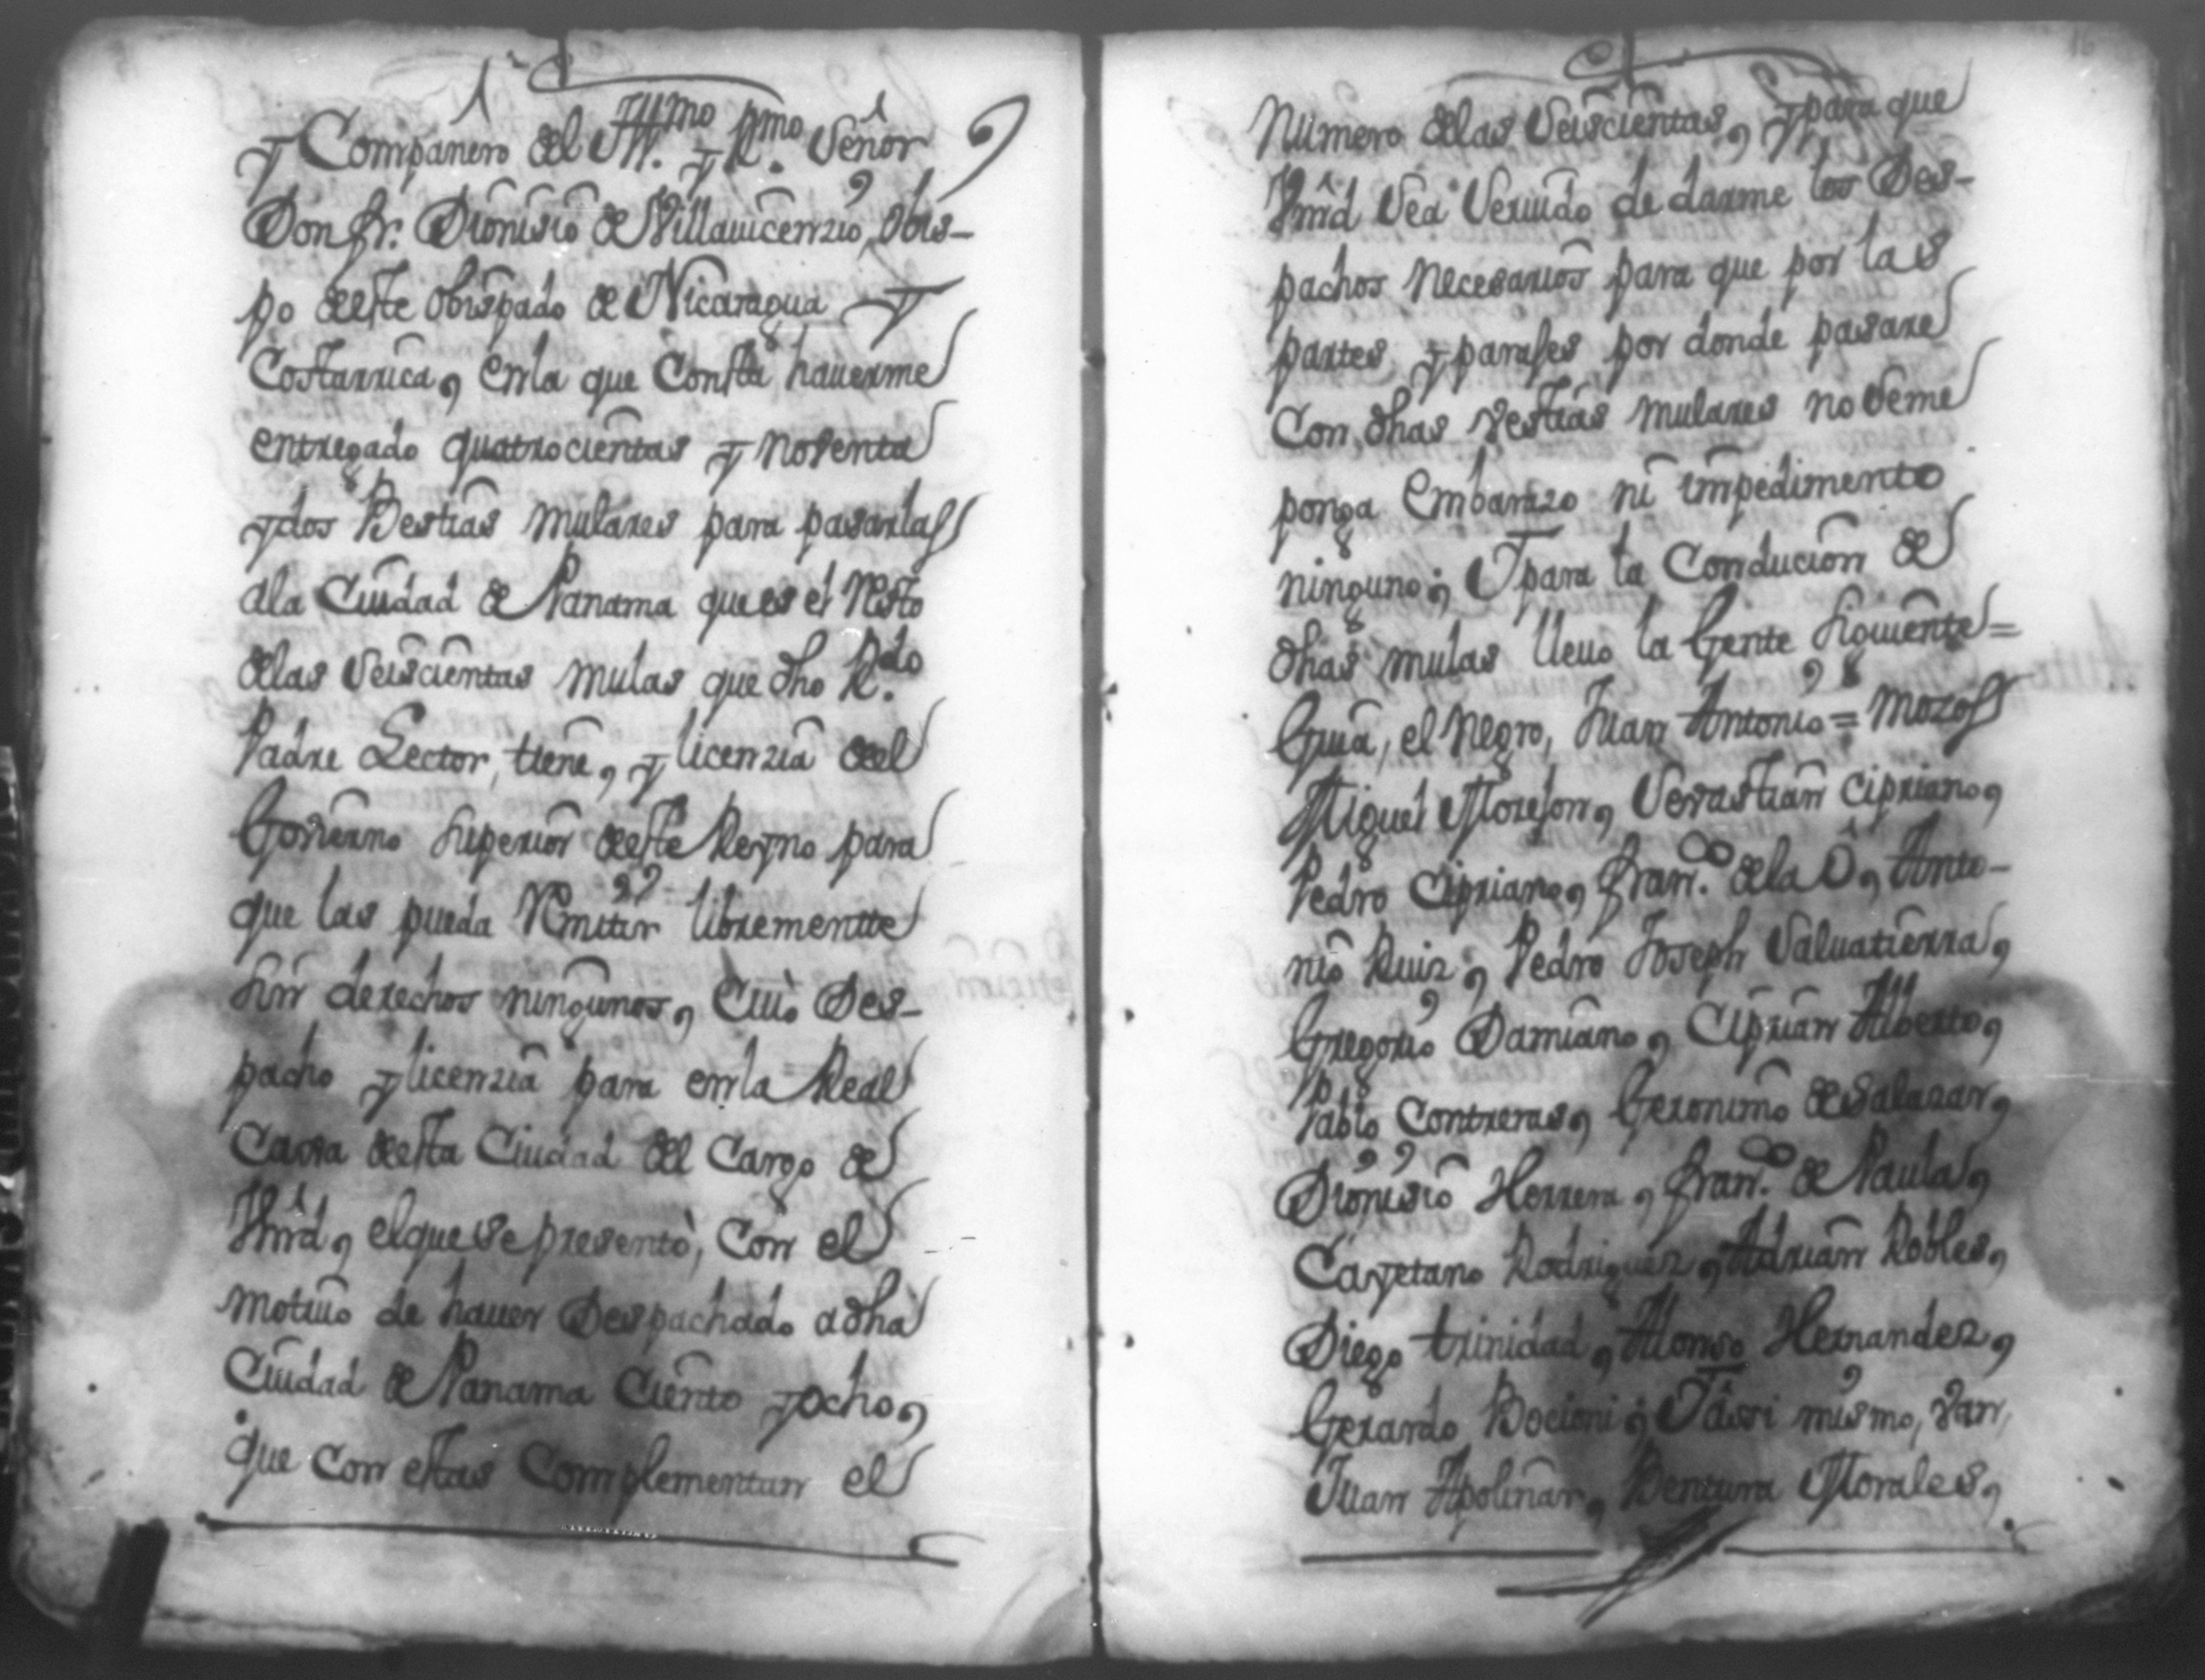 y Compañero del Yll.mo y R.mo Señor
Don fr. Dionisio de Villauicenzio, obis-
po deeste obispado de Nicaragua y
Costarrica, enla que Consta hauerme
entregado quatrocientas y nobenta
y dos Bestias mulares para pasarlas
ala Ciudad de Panama que es el Resto
delas seiscientas mulas que dho R.do
Padre Lector, tiene, y licenzia del
Govierno superior deeste Reyno para
que las pueda Remitir librementte
sin derechos ningunos, Cuio Des-
pacho y licenzia para enla Real
Caxa deesta Ciudad del Cargo de
Vmrd, elque se presentò, con el
motiuo de hauer Despachado adha
Ciudad de Panama Ciento y ocho,
que con estas Complementan el
Numero delas seiscientas, y para que
Vmrd sea seruido de darme los Des-
pachos necesarios para que por las
partes, y parajes por donde pasare
Con dhas vestias mulares no seme
ponga Embarazo ni impedimento
ninguno; Y para la Conducion de
dhas mulas lleuo la Gente siguiente =
Guia, el Negro, Juan Antonio = Mozos
Miguel Morejon, Sevastian Cipriano,
Pedro Cipriano, Fran.co dela O, Anto-
nio Ruiz, Pedro Joseph Saluatierra,
Gregorio Damiano, Ciprian Alberto,
Pablo Contreras, Geronimo de Salazar,
Dionisio Herrera, Fran.co de Paula,
Cayetano Rodriguez, Adrian Robles,
Diego trinidad, Alonso Hernandez,
Gerardo Bocioni; Y assi mismo, van,
Juan Apolinar, Bentura Morales,